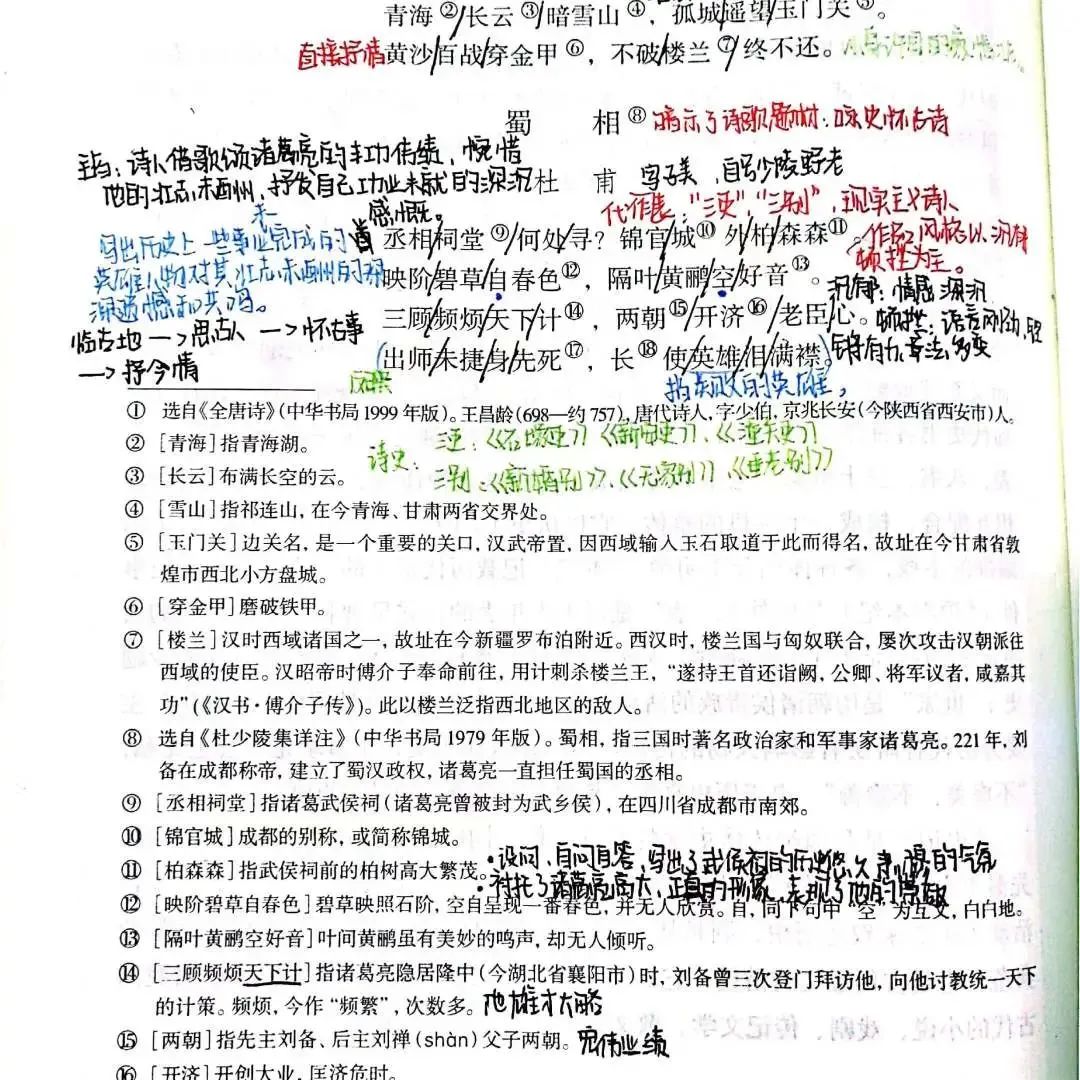 青海②/长云③/暗雪山④，孤城/遥望/玉门关⑤。
直接抒情
黄沙/百战/穿金甲⑥，不破/楼兰⑦/终不还。
蜀 相⑧
暗示了诗歌题材：咏史怀古诗
主旨：诗人借歌颂诸葛亮的丰功伟绩，惋惜
他的壮志未酬，抒发自己功业未就的深沉
感慨。
杜 甫
字子美，自号少陵野老
代作集："三吏"，"三别"，现实主义诗人
作品风格以沉郁
顿挫为主。
未
写出历史上一些事业完成的
英雄人物对其壮志未酬的深
深遗憾和共鸣。
丞相/祠堂⑨/何处/寻？锦官/城⑩外/柏/森森⑪。
映阶/碧草/自春色⑫，隔叶/黄鹂/空/好音⑬。
三顾/频烦/天下/计⑭，两朝⑮/开济⑯/老臣/心。
出师/未捷/身/先死⑰，长⑱使/英雄/泪/满襟。
沉郁：情感深沉
顿挫：语言
临古地→思古人→怀古事
→抒今情
指失败的英雄，
① 选自《全唐诗》（中华书局1999年版）。王昌龄（698—约757），唐代诗人，字少伯，京兆长安（今陕西省西安市）人。
② [青海]指青海湖。
诗史：三吏：《石壕吏》《新安吏》、《潼关吏》
三别：《新婚别》、《无家别》、《垂老别》
③ [长云]布满长空的云。
④ [雪山]指祁连山，在今青海、甘肃两省交界处。
⑤ [玉门关]边关名，是一个重要的关口，汉武帝置，因西域输入玉石取道于此而得名，故址在今甘肃省敦
煌市西北小方盘城。
⑥ [穿金甲]磨破铁甲。
⑦ [楼兰]汉时西域诸国之一，故址在今新疆罗布泊附近。西汉时，楼兰国与匈奴联合，屡次攻击汉朝派往
西域的使臣。汉昭帝时傅介子奉命前往，用计刺杀楼兰王，"遂持王首还诣阙，公卿、将军议者，咸嘉其
功"（《汉书·傅介子传》）。此以楼兰泛指西北地区的敌人。
⑧ 选自《杜少陵集详注》（中华书局1979年版）。蜀相，指三国时著名政治家和军事家诸葛亮。221年，刘
备在成都称帝，建立了蜀汉政权，诸葛亮一直担任蜀国的丞相。
⑨ [丞相祠堂]指诸葛武侯祠（诸葛亮曾被封为武乡侯），在四川省成都市南郊。
⑩ [锦官城]成都的别称，或简称锦城。
·设问，自问自答，写出了武侯祠的历史悠久肃穆的气氛
⑪ [柏森森]指武侯祠前的柏树高大繁茂。
·衬托了诸葛亮高大、正直的形象，表现了他的
⑫ [映阶碧草自春色]碧草映照石阶，空自呈现一番春色，并无人欣赏。自，同下句中"空"为互文，白白地。
⑬ [隔叶黄鹂空好音]叶间黄鹂虽有美妙的鸣声，却无人倾听。
⑭ [三顾频烦天下计]指诸葛亮隐居隆中（今湖北省襄阳市）时，刘备曾三次登门拜访他，向他讨教统一天下
的计策。频烦，今作"频繁"，次数多。他雄才大略
⑮ [两朝]指先主刘备、后主刘禅（shàn）父子两朝。宏伟业绩
⑯ [开济]开创大业，匡济危时。